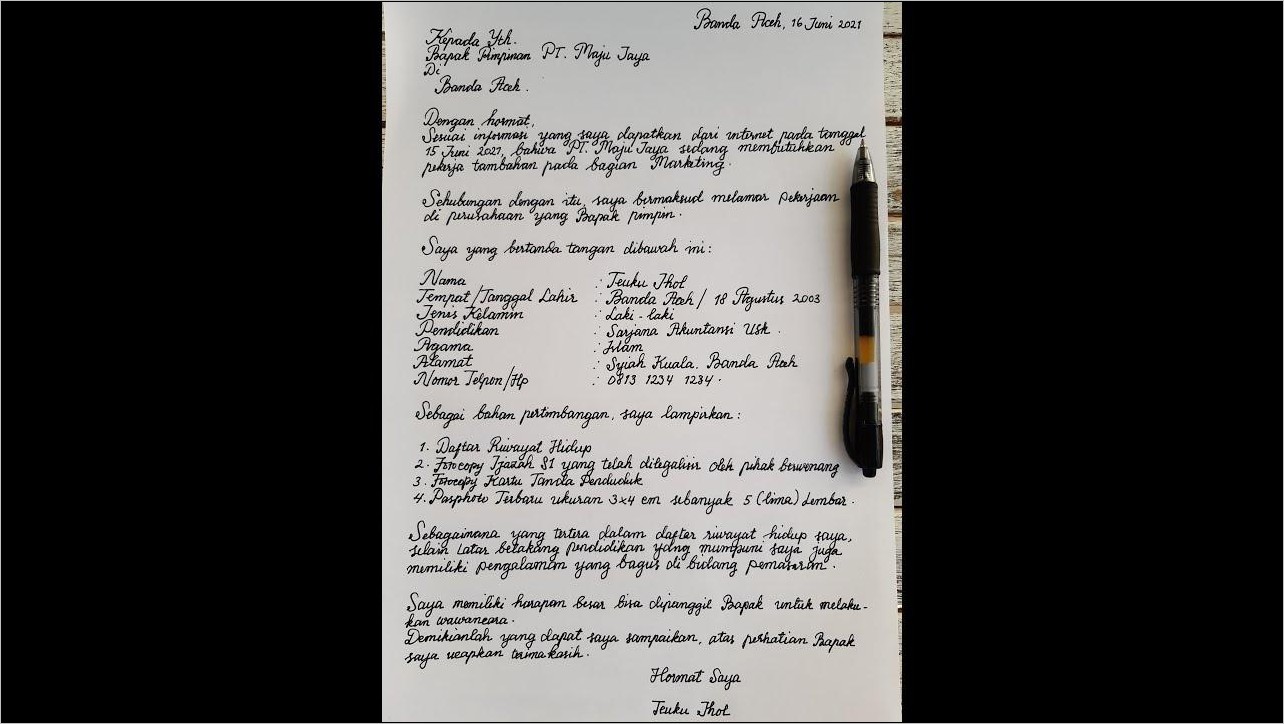 Banda Aceh, 16 Juni 2021
Kepada Yth.
Bapak Pimpinan PT. Maju Jaya
Di
Banda Aceh.
Dengan hormat,
Sesuai informasi yang saya dapatkan dari internet pada tanggal
15 Juni 2021, bahwa PT. Maju Jaya sedang membutuhkan
pekerja tambahan pada bagian Marketing.
Sehubungan dengan itu, saya bermaksud melamar pekerjaan
di perusahaan yang Bapak pimpin.
Saya yang bertanda tangan dibawah ini:
Nama : Teuku Jhol
Tempat/Tanggal Lahir : Banda Aceh/ 18 Agustus 2003
Jenis Kelamin : Laki-laki
Pendidikan : Sarjana Akuntansi Usk.
Agama : Islam
Alamat : Syiah Kuala. Banda Aceh
Nomor Telpon/Hp : 0813 1234 1234.
Sebagai bahan pertimbangan, saya lampirkan:
1. Daftar Riwayat Hidup
2. Fotocopy Ijazah S1 yang telah dilegalisir oleh pihak berwenang
3. Fotocopy Kartu Tanda Penduduk
4. Pasphoto Terbaru ukuran 3x4 cm sebanyak 5 (lima) Lembar.
Sebagaimana yang tertera dalam daftar riwayat hidup saya,
selain Latar belakang pendidikan yang mumpuni saya juga
memiliki pengalaman yang bagus di bidang pemasaran.
Saya memiliki harapan besar bisa dipanggil Bapak untuk melaku-
kan wawancara.
Demikianlah yang dapat saya sampaikan, atas perhatian Bapak
saya ucapkan terima kasih.
Hormat Saya
Teuku Jhol